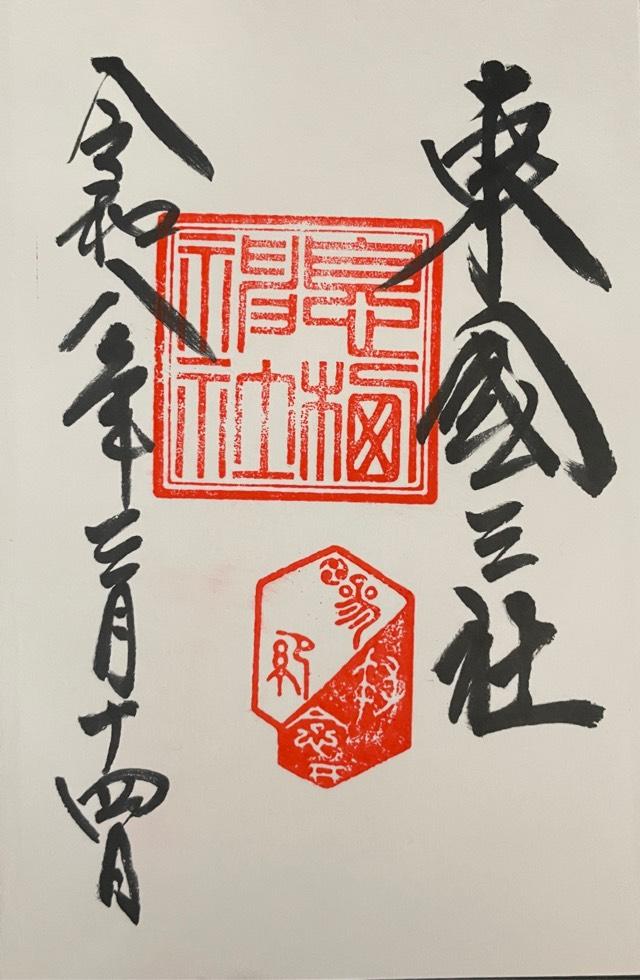 東國三社
息栖神社
参拝
記念
令和八年三月十四日